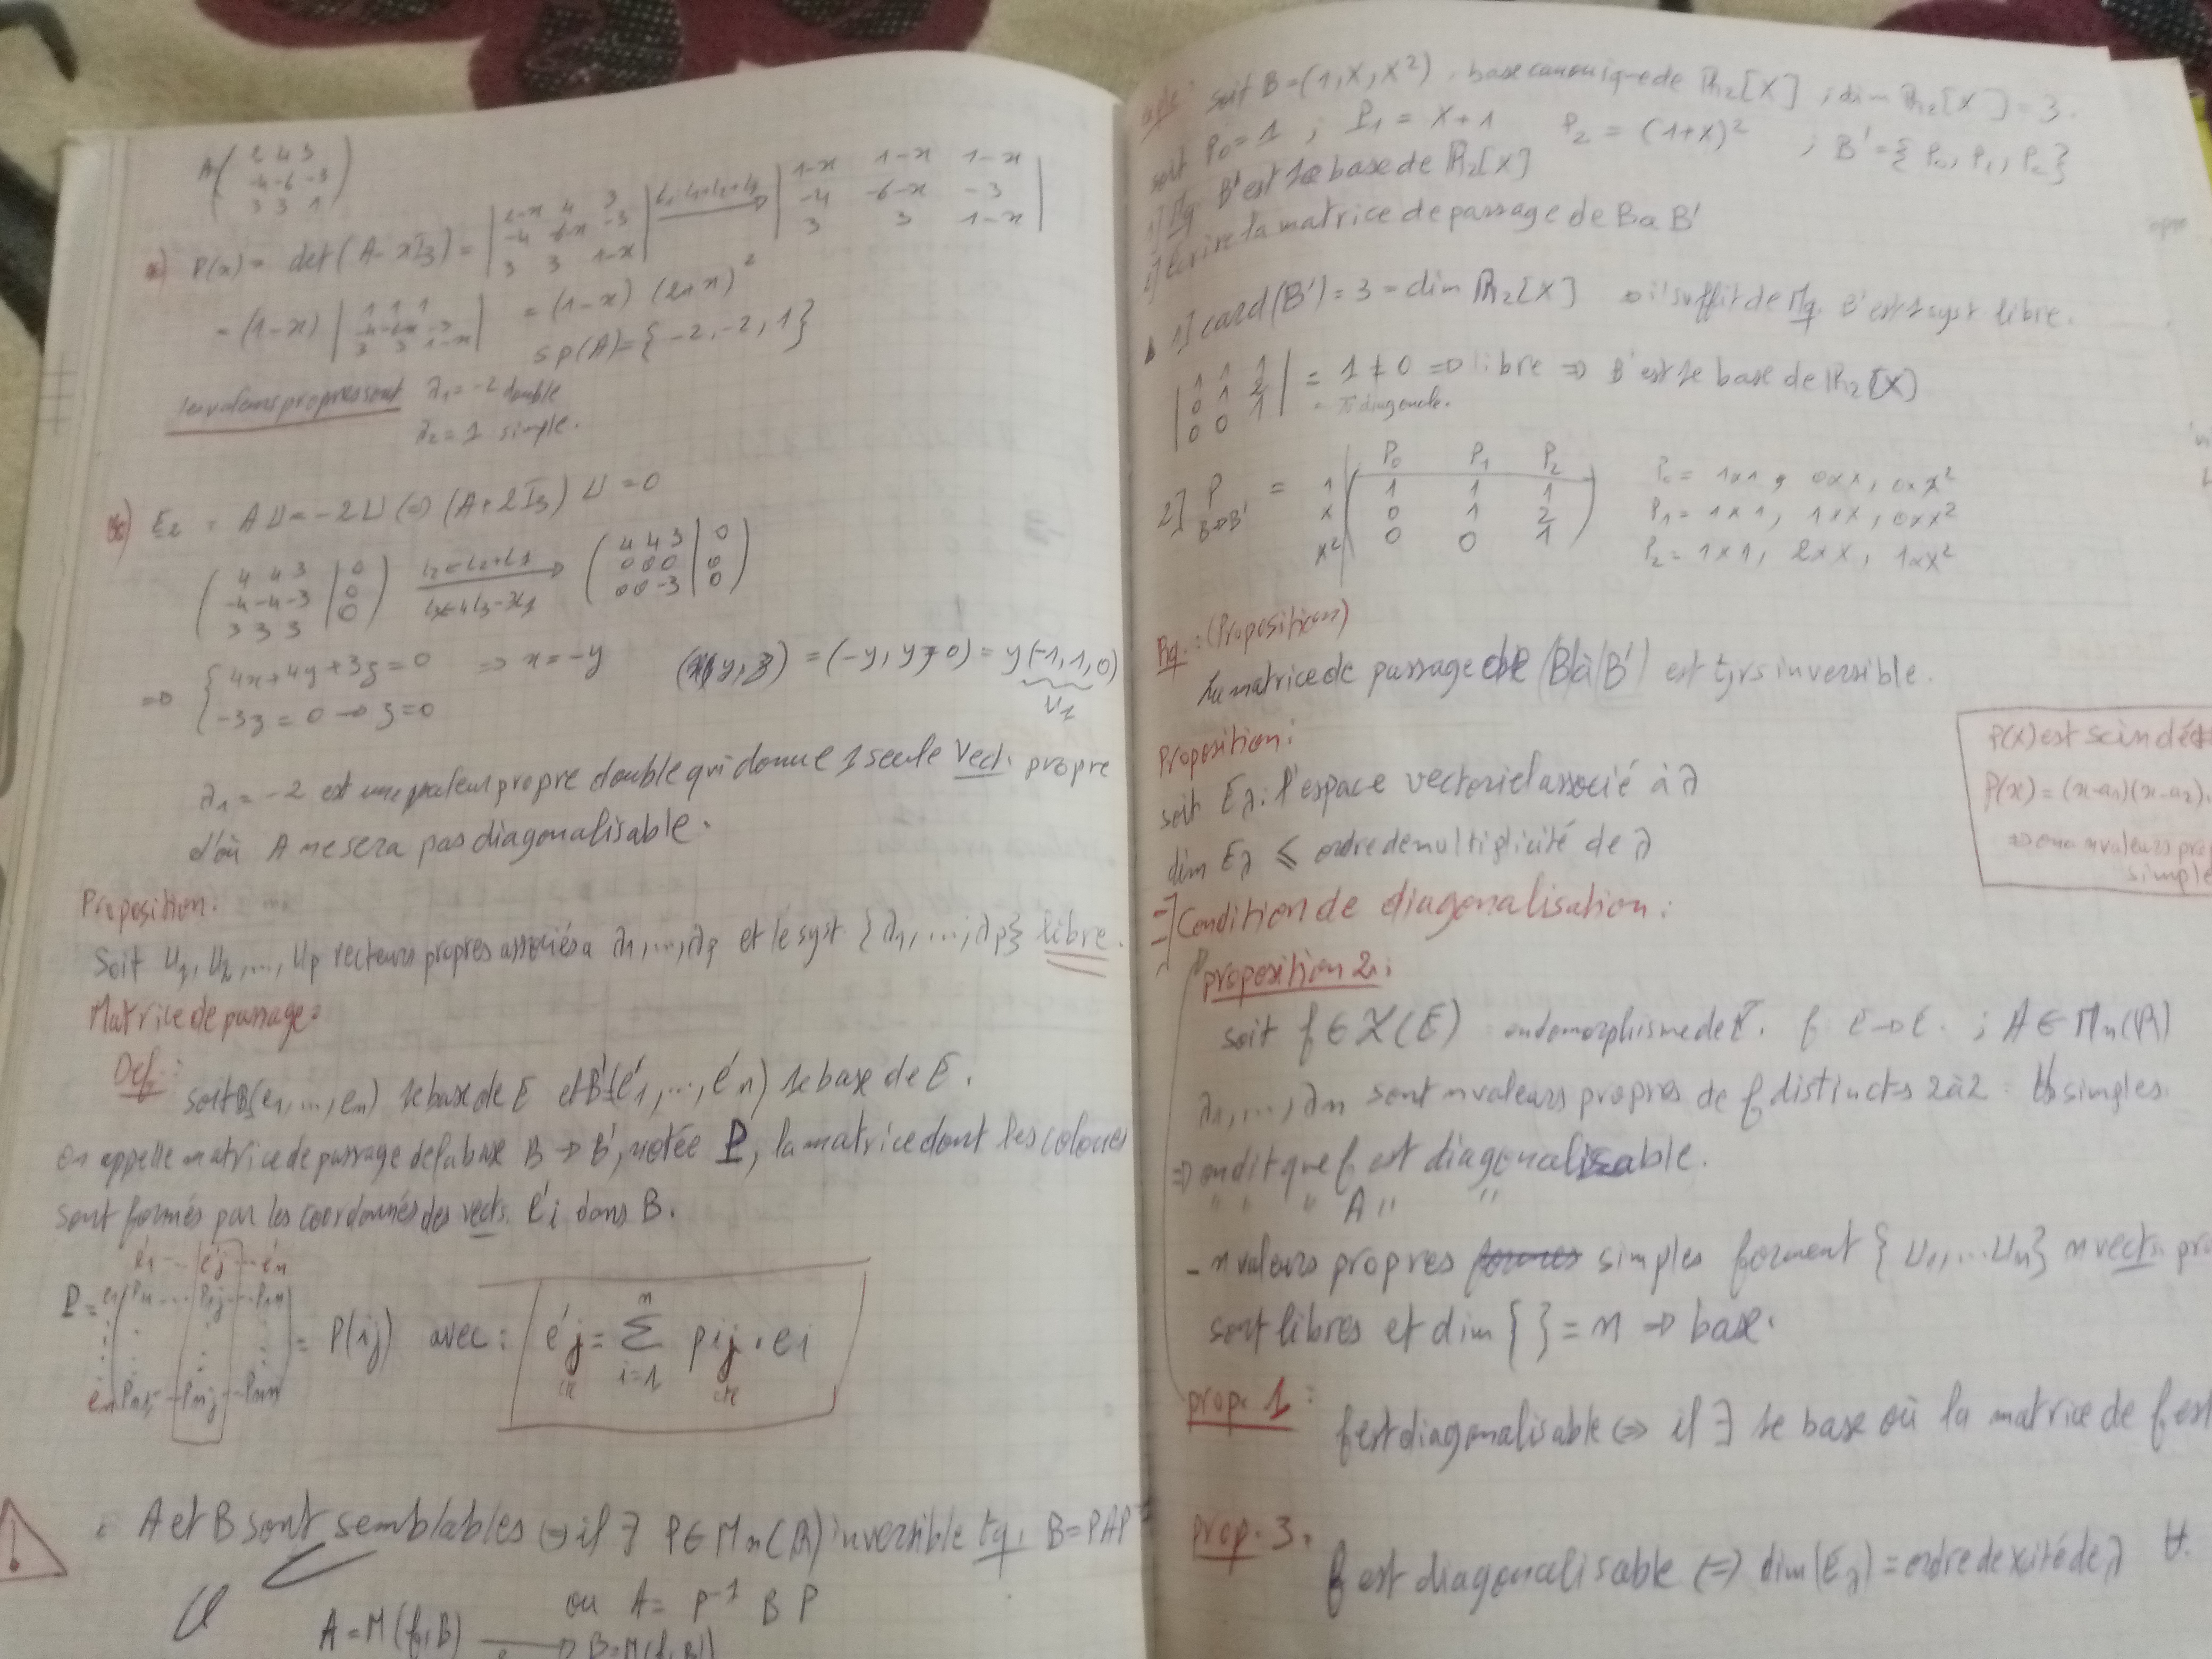 A ( 2 4 3
-4 -6 -3
3 3 1 )
a) P(x) = det(A - xI3) = | 2-x 4 3 | L1←L1+L2+L3 → | 1-x 1-x 1-x |
| -4 -6-x -3 | | -4 -6-x -3 |
| 3 3 1-x | | 3 3 1-x |
= (1-x) | 1 1 1 | = (1-x) (2+x)²
| -4 -6-x -3 |
| 3 3 1-x | sp(A)={-2,-2,1}
les valeurs propres sont λ1=-2 double
λ2=1 simple.
= AU=-2U ⇔ (A+2I3) U = 0
( 4 4 3 | 0 ) L2←L2+L1 → ( 4 4 3 | 0 )
( -4 -4 -3 | 0 ) ( 0 0 0 | 0 )
( 3 3 3 | 0 ) ( 0 0 -3 | 0 )
⇒ { 4x+4y+3z=0 ⇒ x=-y (x,y,z) = (-y,y,0) = y(-1,1,0)
{ -3z=0 → z=0 U1
λ1=-2 est une valeur propre double qui donne 1 seule Vect. propre
d'où A ne sera pas diagonalisable.
Proposition:
Soit U1, U2, ..., Up vecteurs propres associés a λ1,...,λp et le syst {λ1,...,λp} libre.
Matrice de passage:
Def: soit B(e1,...,en) 1e base de E et B'(e'1,...,e'n) 1e base de E.
On appelle matrice de passage de la base B → B', notée P, la matrice dont les colones
sont formés par les coordonnés des vects. e'i dans B.
e'1 ... e'j ... e'n
P = e1 P11 ... P1j ... P1n = P(ij) avec: e'j = Σ i=1 n pij . ei
en Pn1 ... Pnj ... Pnn
A et B sont semblables ⇔ il ∃ P∈Mn(R) inversible tq. B=PAP⁻¹
ou A = P⁻¹ B P
A=M(f,B) → B=M(f,B')
soit B=(1,X,X²), base canonique de R2[X] ; dim R2[X]=3.
soit P0=1 ; P1=X+1 P2=(1+X)² ; B'={P0,P1,P2}
1] Mq B' est 1e base de R2[X]
2] écrire la matrice de passage de B a B'
1] card(B')=3=dim R2[X] ⇒ il suffit de Mq. B' est 1 syst libre.
| 1 1 1 |
| 0 1 2 | = 1 ≠ 0 ⇒ libre ⇒ B' est 1e base de R2[X]
| 0 0 1 | = π diagonale.
P0 P1 P2
2] P B→B' = 1 ( 1 1 1 ) P0 = 1x1, 0xX, 0xX²
X ( 0 1 2 ) P1 = 1x1, 1xX, 0xX²
X² ( 0 0 1 ) P2 = 1x1, 2xX, 1xX²
Rq.: (Proposition)
La matrice de passage de (B à B') est tjrs inversible.
Proposition:
soit Eλ: l'espace vectoriel associé à λ
dim Eλ ⩽ ordre de multiplicité de λ
P(X) est scindé
P(x) = (x-a1)(x-a2)
simple
=] Condition de diagonalisation:
proposition 2:
soit f∈L(E) endomorphisme de E. f E→E. ; A∈Mn(R)
λ1,...,λn sont n valeurs propres de f distincts 2 à 2 simples.
⇒ on dit que f est diagonalisable.
" " " A " "
- n valeurs propres simples forment {U1,...Un} n vects
sont libres et dim { } = n ⇒ base.
prop. 1:
f est diagonalisable ⇔ il ∃ 1e base où la matrice de f est
prop. 3.
f est diagonalisable ⇔ dim(Eλ) = ordre de xcité de λ ∀.